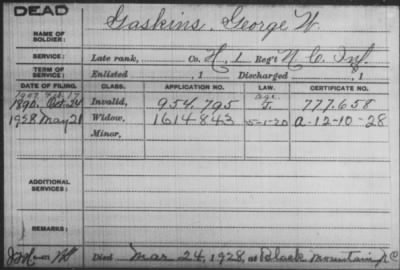 DEAD
Gaskins, George W.
NAME OF SOLDIER:
SERVICE: Late rank, Co. H, 1 Reg't N.C. Inf.
TERM OF SERVICE: Enlisted , 1 Discharged , 1
DATE OF FILING. CLASS. APPLICATION NO. LAW. CERTIFICATE NO.
1890. Oct. 24 Invalid, 954.795 J. 777.658
1928 May 21 Widow, 1614843 5-1-20 a-12-10-28
Minor,
ADDITIONAL SERVICES:
REMARKS:
Died Mar 24, 1928, at Black Mountain, N C